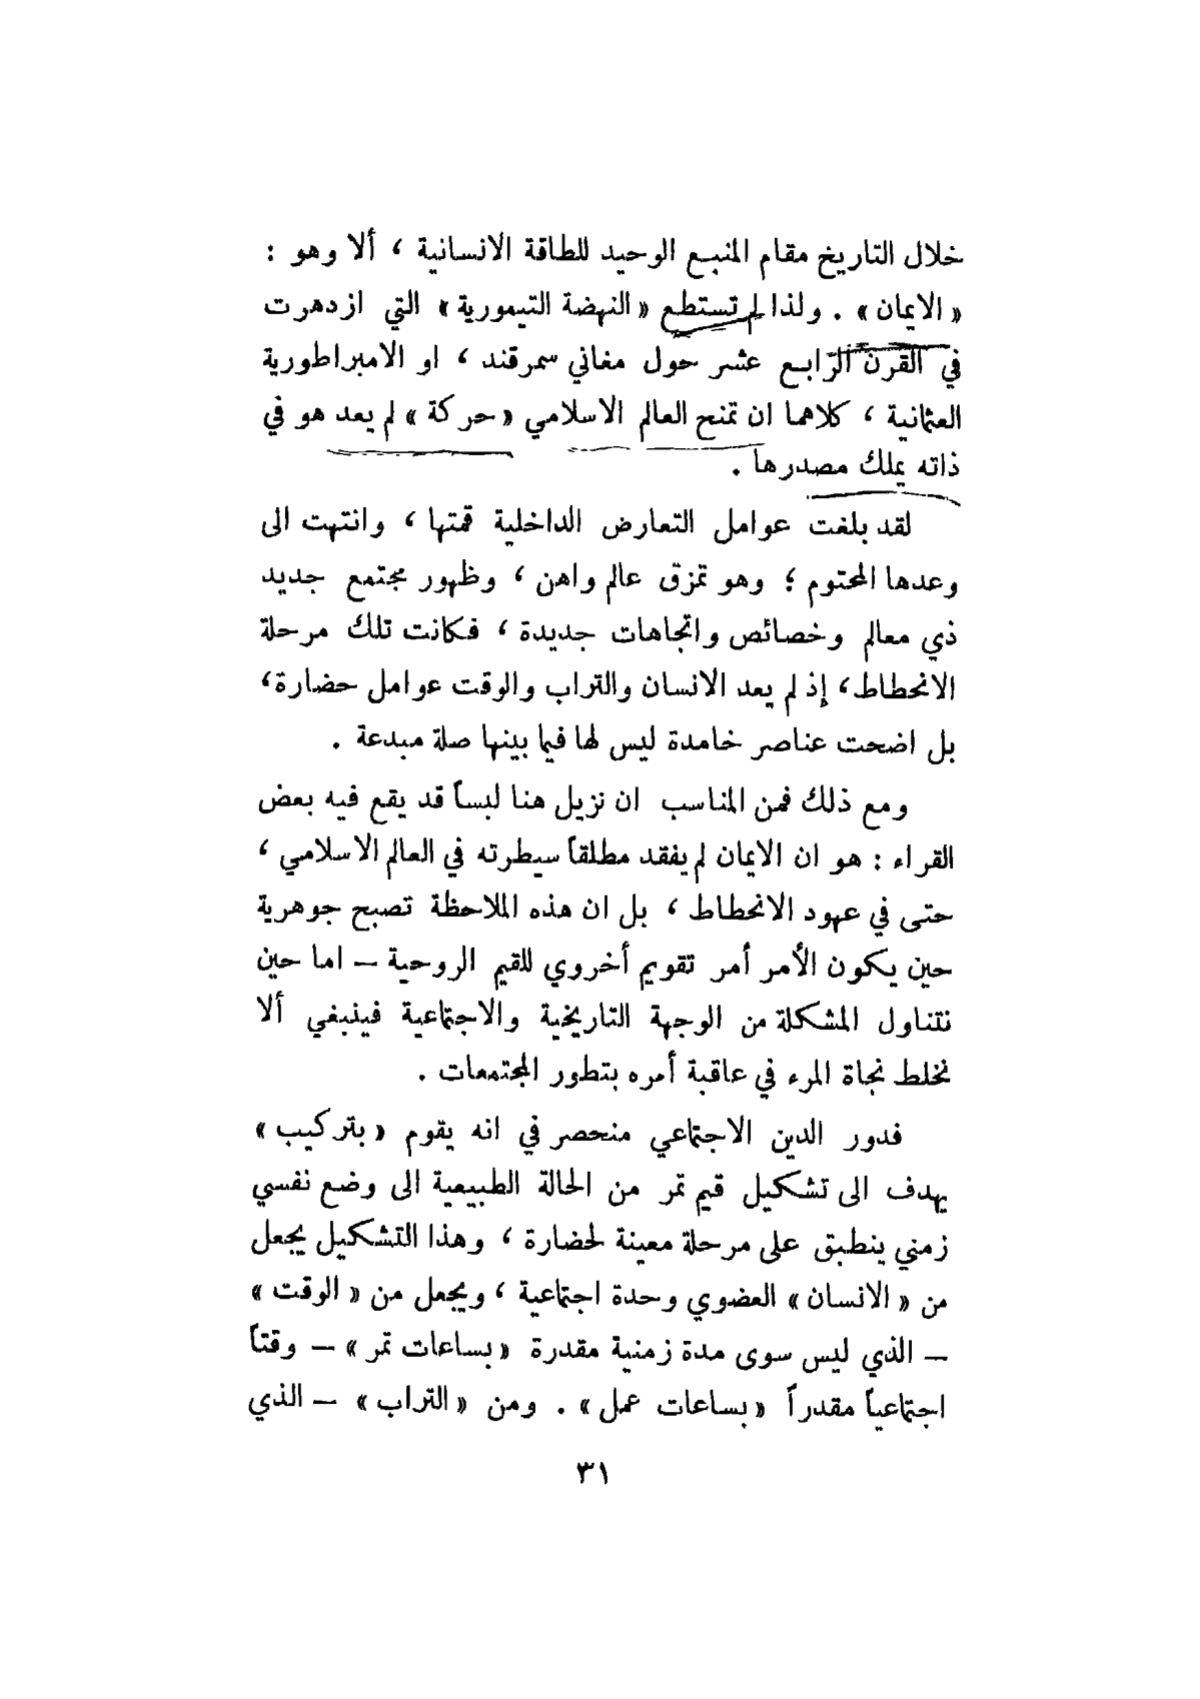 خلال التاريخ مقام المنبع الوحيد للطاقة الانسانية ، ألا وهو :
« الايمان » . ولذا لم تستطع « النهضة التيمورية » التي ازدهرت
في القرن الرّابع عشر حول مغاني سمرقند ، او الامبراطورية
العثمانية ، كلاهما ان تمنح العالم الاسلامي « حركة » لم يعد هو في
ذاته يملك مصدرها .
لقد بلغت عوامل التعارض الداخلية قمتها ، وانتهت الى
وعدها المحتوم ؛ وهو تمزق عالم واهن ، وظهور مجتمع جديد
ذي معالم وخصائص واتجاهات جديدة ، فكانت تلك مرحلة
الانحطاط ، إذ لم يعد الانسان والتراب والوقت عوامل حضارة ،
بل اضحت عناصر خامدة ليس لها فيما بينها صلة مبدعة .
ومع ذلك فمن المناسب ان نزيل هنا لبساً قد يقع فيه بعض
القراء : هو ان الايمان لم يفقد مطلقاً سيطرته في العالم الاسلامي ،
حتى في عهود الانحطاط ، بل ان هذه الملاحظة تصبح جوهرية
حين يكون الأمر أمر تقويم أخروي للقيم الروحية – اما حين
نتناول المشكلة من الوجهة التاريخية والاجتماعية فينبغي ألا
نخلط نجاة المرء في عاقبة أمره بتطور المجتمعات .
فدور الدين الاجتماعي منحصر في انه يقوم « بتركيب »
يهدف الى تشكيل قيم تمر من الحالة الطبيعية الى وضع نفسي
زمني ينطبق على مرحلة معينة لحضارة ، وهذا التشكيل يجعل
من « الانسان » العضوي وحدة اجتماعية ، ويجعل من « الوقت »
– الذي ليس سوى مدة زمنية مقدرة « بساعات تمر » – وقتاً
اجتماعياً مقدراً « بساعات عمل » . ومن « التراب » – الذي
٣١